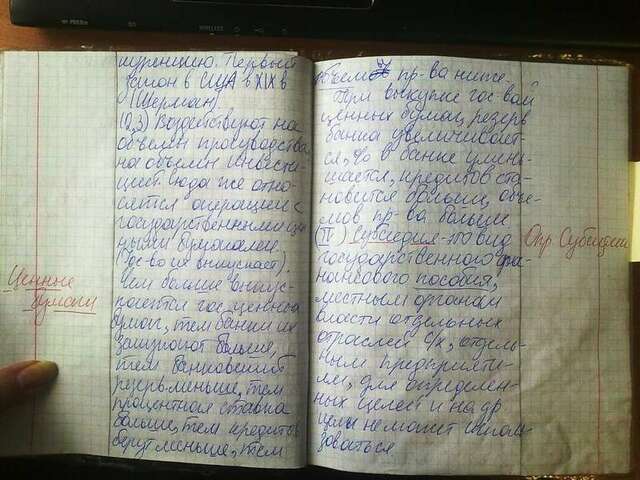 куренцию. Первый
закон в США в XIX в
(Шерман)
0,3) Воздействуют на
объемы производства
на объемы инвести-
ций. Сюда же отно-
сятся операции с
государственными цен-
ными бумагами.
(гос-во их выпускает).
Чем больше выпус-
кается гос. ценных
бумаг, тем банки их
закупают больше,
тем банковский
резерв меньше, тем
процентная ставка
больше, тем кредитов
берут меньше, тем
Ценные
бумаги
объем пр-ва ниже.
При выкупе гос-вом
ценных бумаг, резерв
банка увеличивает-
ся, % в банке умень-
шается, кредитов ста-
новится больше, объе-
мов пр-ва больше
(II) Субсидия - это вид
государственного фи-
нансового пособия,
местным органам
власти отдельных
отраслей с/х, отдель-
ным предприяти-
ям, для определен-
ных целей и на др
цели не может исполь-
зоваться.
Опр Субсидии